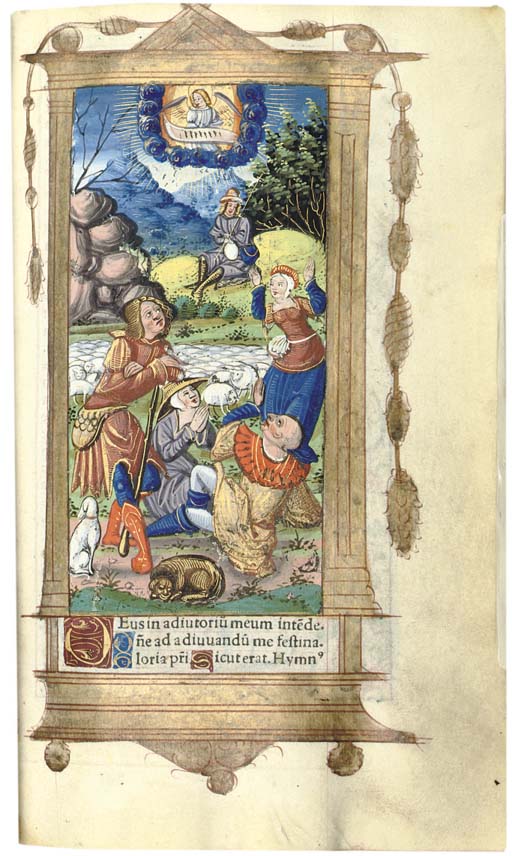 DEus in adiutoriũ meum intẽde.
Dñe ad adiuuandũ me festina.
Gloria pr̃i. Sicut erat. Hymn⁹